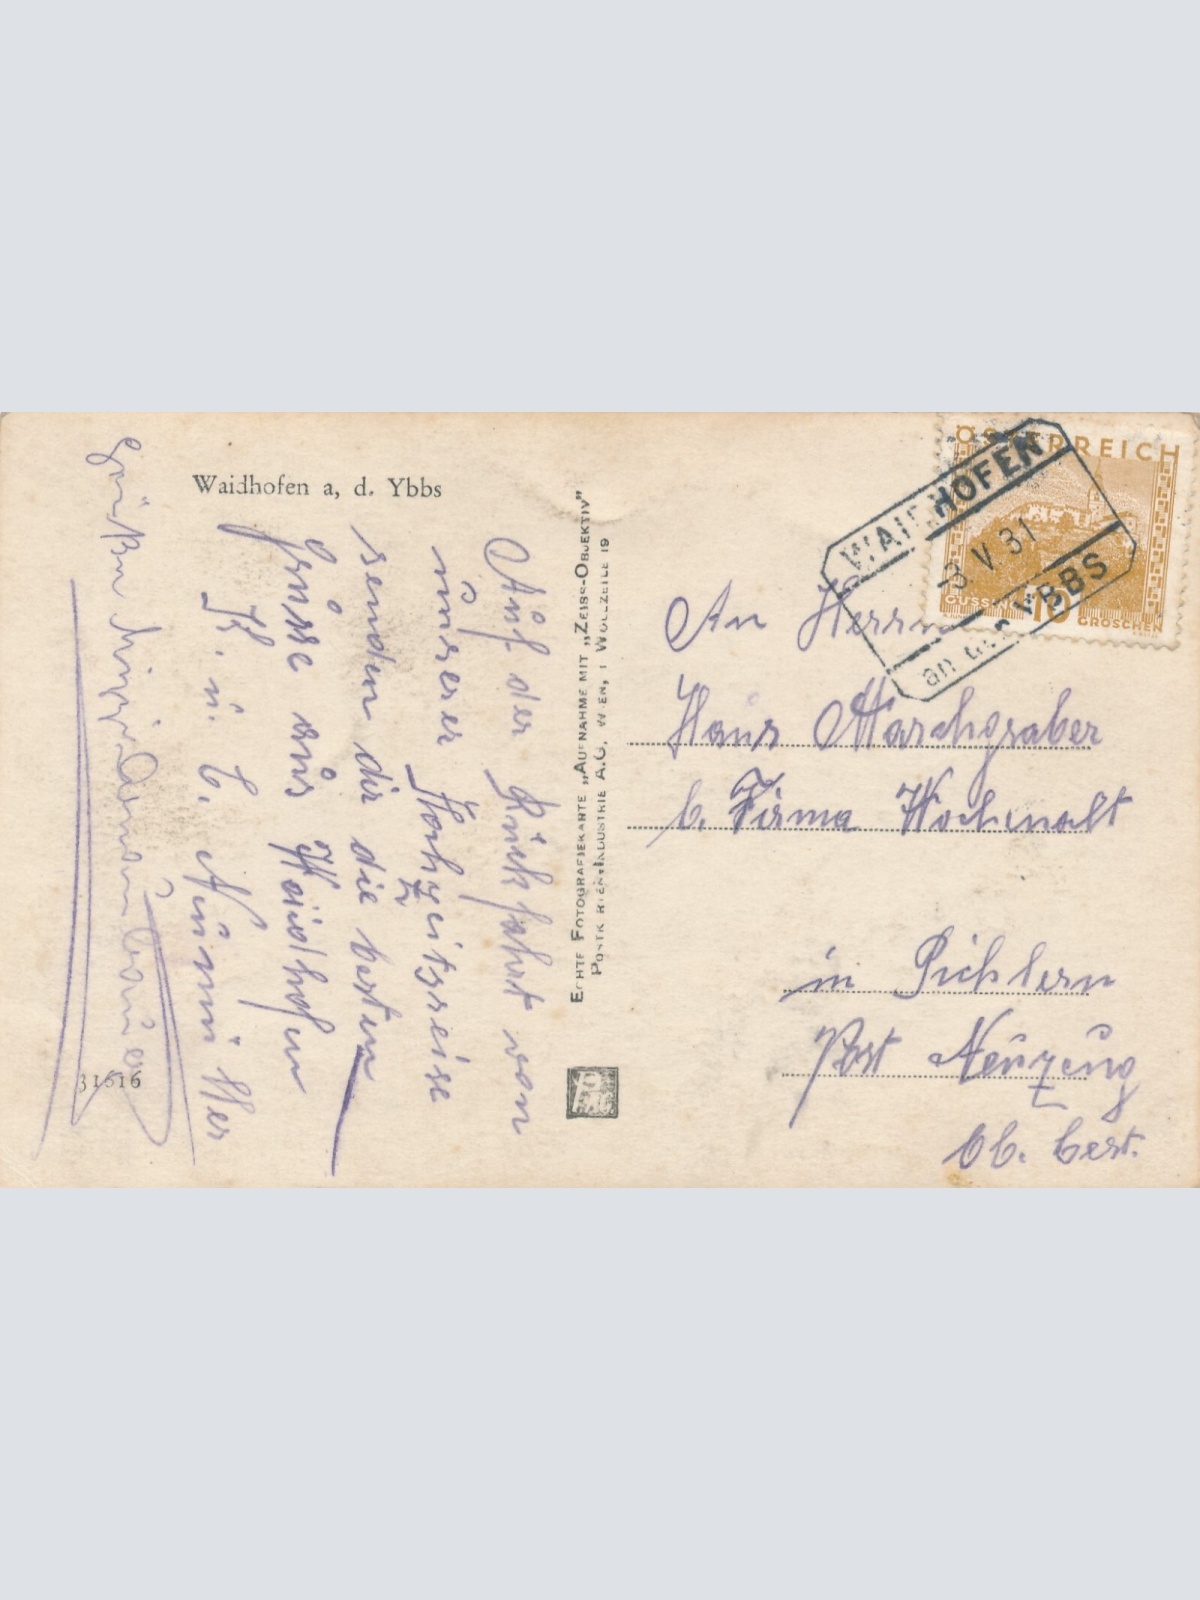 Waidhofen a, d. Ybbs
Auf der Rückfahrt von
unserer Hochzeitsreise
senden dir die besten
Grüsse aus Waidhofen
u.
31616
ECHTE FOTOGRAFIEKARTE „AUFNAHME MIT „ZEISS-OBJEKTIV”
INDUSTRIE A.G, WIEN, I WOLLZEILE 19
ÖSTERREICH
GÜSSING 10 GROSCHEN
WAIDHOFEN
-3 V 31
an der YBBS
An Herrn
Hans Marchgraber
b. Firma
in Pichlern
Post Neuzeug
Ob. Oest.